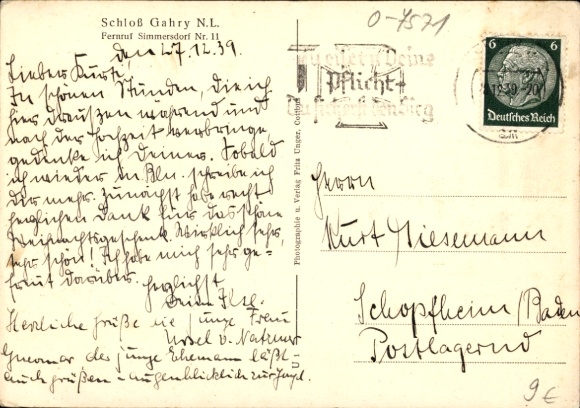 Schloß Gahry N.L.
Fernruf Simmersdorf Nr. 11
O-7571
den 27.12.39.
Lieber Kurt,
In schönen Stunden, die ich
hier draußen während und
nach der Hochzeit verbringe,
gedenke ich Deiner. Sobald
ich wieder in Bln. schreibe ich
Dir mehr. Zunächst habe recht
herzlichen Dank für das schöne
Weihnachtsgeschenk. Wirklich sehr,
sehr schön! Ich habe mich sehr ge-
freut darüber.
Herzlichst
Deine Ilse.
Herzliche Grüße die junge Frau
Ursel v. Natzmer
der junge Ehemann läßt
auch grüßen - augenblicklich zur Jagd.
Photographie u. Verlag Fritz Unger, Cottbus
Deine
Pflicht
6 6
Deutsches Reich
Herrn
Kurt Giesemann
Schopfheim/Baden
Postlagernd
9€